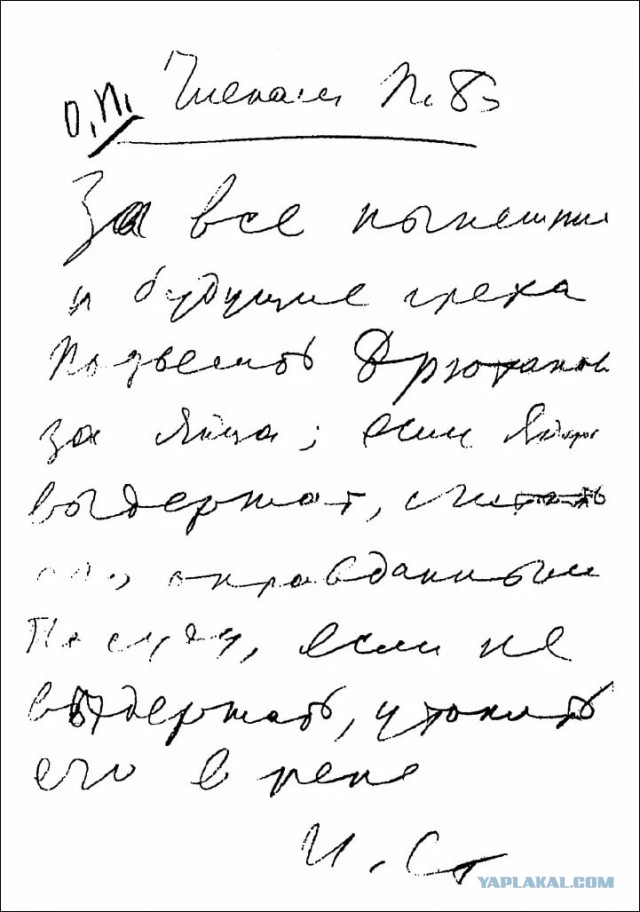 О.П. Членам П.Б.
За все нынешние
и будущие грехи
подвесить Брюханова
за яйца; если яйца
выдержат, считать
его оправданным
по суду, если не
выдержат, утопить
его в реке
И. Ст
YAPLAKAL.COM